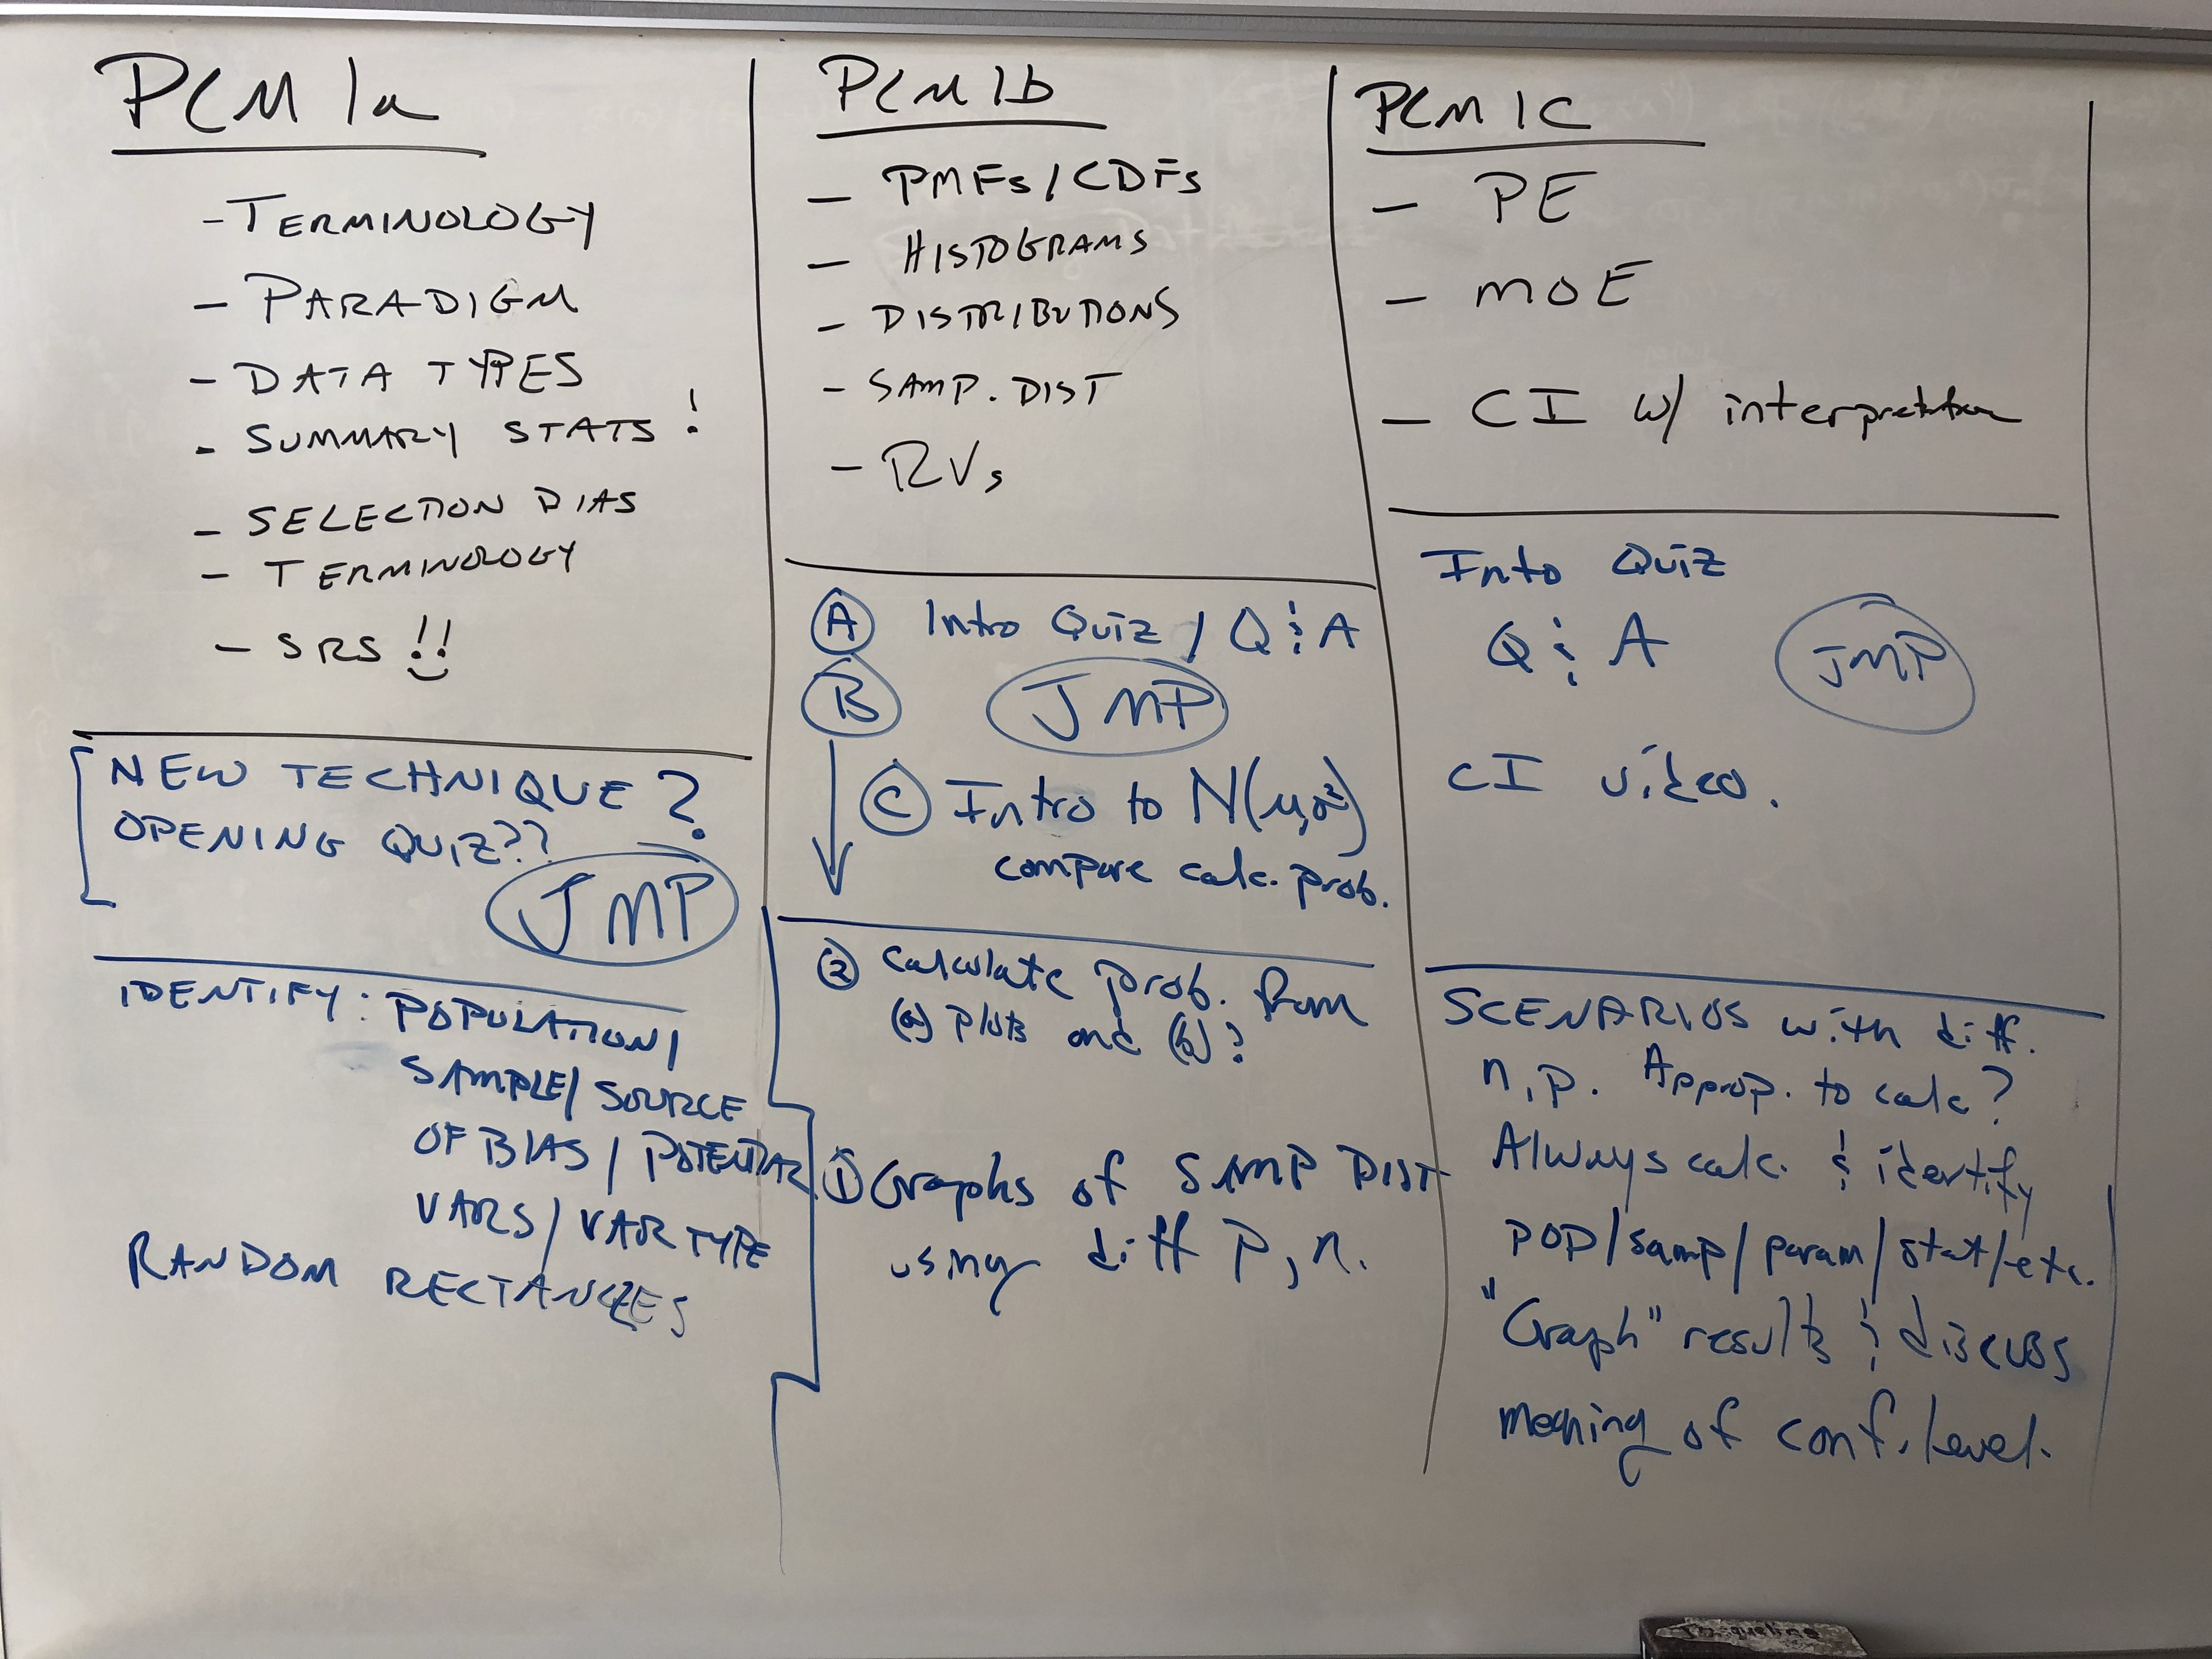 PCM 1a
- TERMINOLOGY
- PARADIGM
- DATA TYPES
- SUMMARY STATS !
- SELECTION BIAS
- TERMINOLOGY
- SRS !!
NEW TECHNIQUE ?
OPENING QUIZ??
JMP
IDENTIFY: POPULATION/
SAMPLE/ SOURCE
OF BIAS / POTENTIAL
VARS/ VAR TYPE
RANDOM RECTANGLES
PCM 1b
- PMFs / CDFs
- HISTOGRAMS
- DISTRIBUTIONS
- SAMP. DIST
- RVs
A Intro Quiz / Q & A
B JMP
C Intro to N(μ,σ²)
compare calc. prob.
② Calculate prob. from
(a) plots and (b) ?
① Graphs of SAMP DIST
using diff p, n.
PCM 1C
- PE
- MOE
- CI w/ interpretation
Into Quiz
Q & A
JMP
CI video.
SCENARIOS with diff.
n, p. Approp. to calc?
Always calc. & identify
POP/samp/param/stat/etc.
"Graph" results & discuss
meaning of conf. level.
Jacqueline